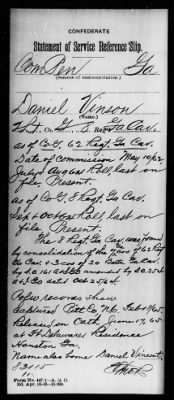 CONFEDERATE
Statement of Service Reference Slip.
Com Pen Ga
(Source of communication.)
Daniel Vinson
(Name)
Lt. Co. G 8 Reg't Ga Cav.
as of Co G, 62 Regt. Ga Cav.
Date of commission May 10/62
July & Aug 63 Roll, last on
file, Present.
as of Co G, 8 Regt. Ga Cav.
Sept & Oct Roll, last on
file, Present.
The 8 Regt. Ga Cav. was formed
by consolidation of the 7 cos of 62 Regt
Ga Cav. & 3 cos of 20 Batln Ga Cav.
by S.O. 161 A&IGO amended by S.O. 254
A&IGO dated Oct 25/64
Pofw records show
Captured Pitt Co, N.C. Feb 1865,
Released on Oath June 17, 65
at Ft. Delaware Residence
Houston Ga.
Name also borne Daniel Vincent,
82115
Form No. 147-1—A. G. O.